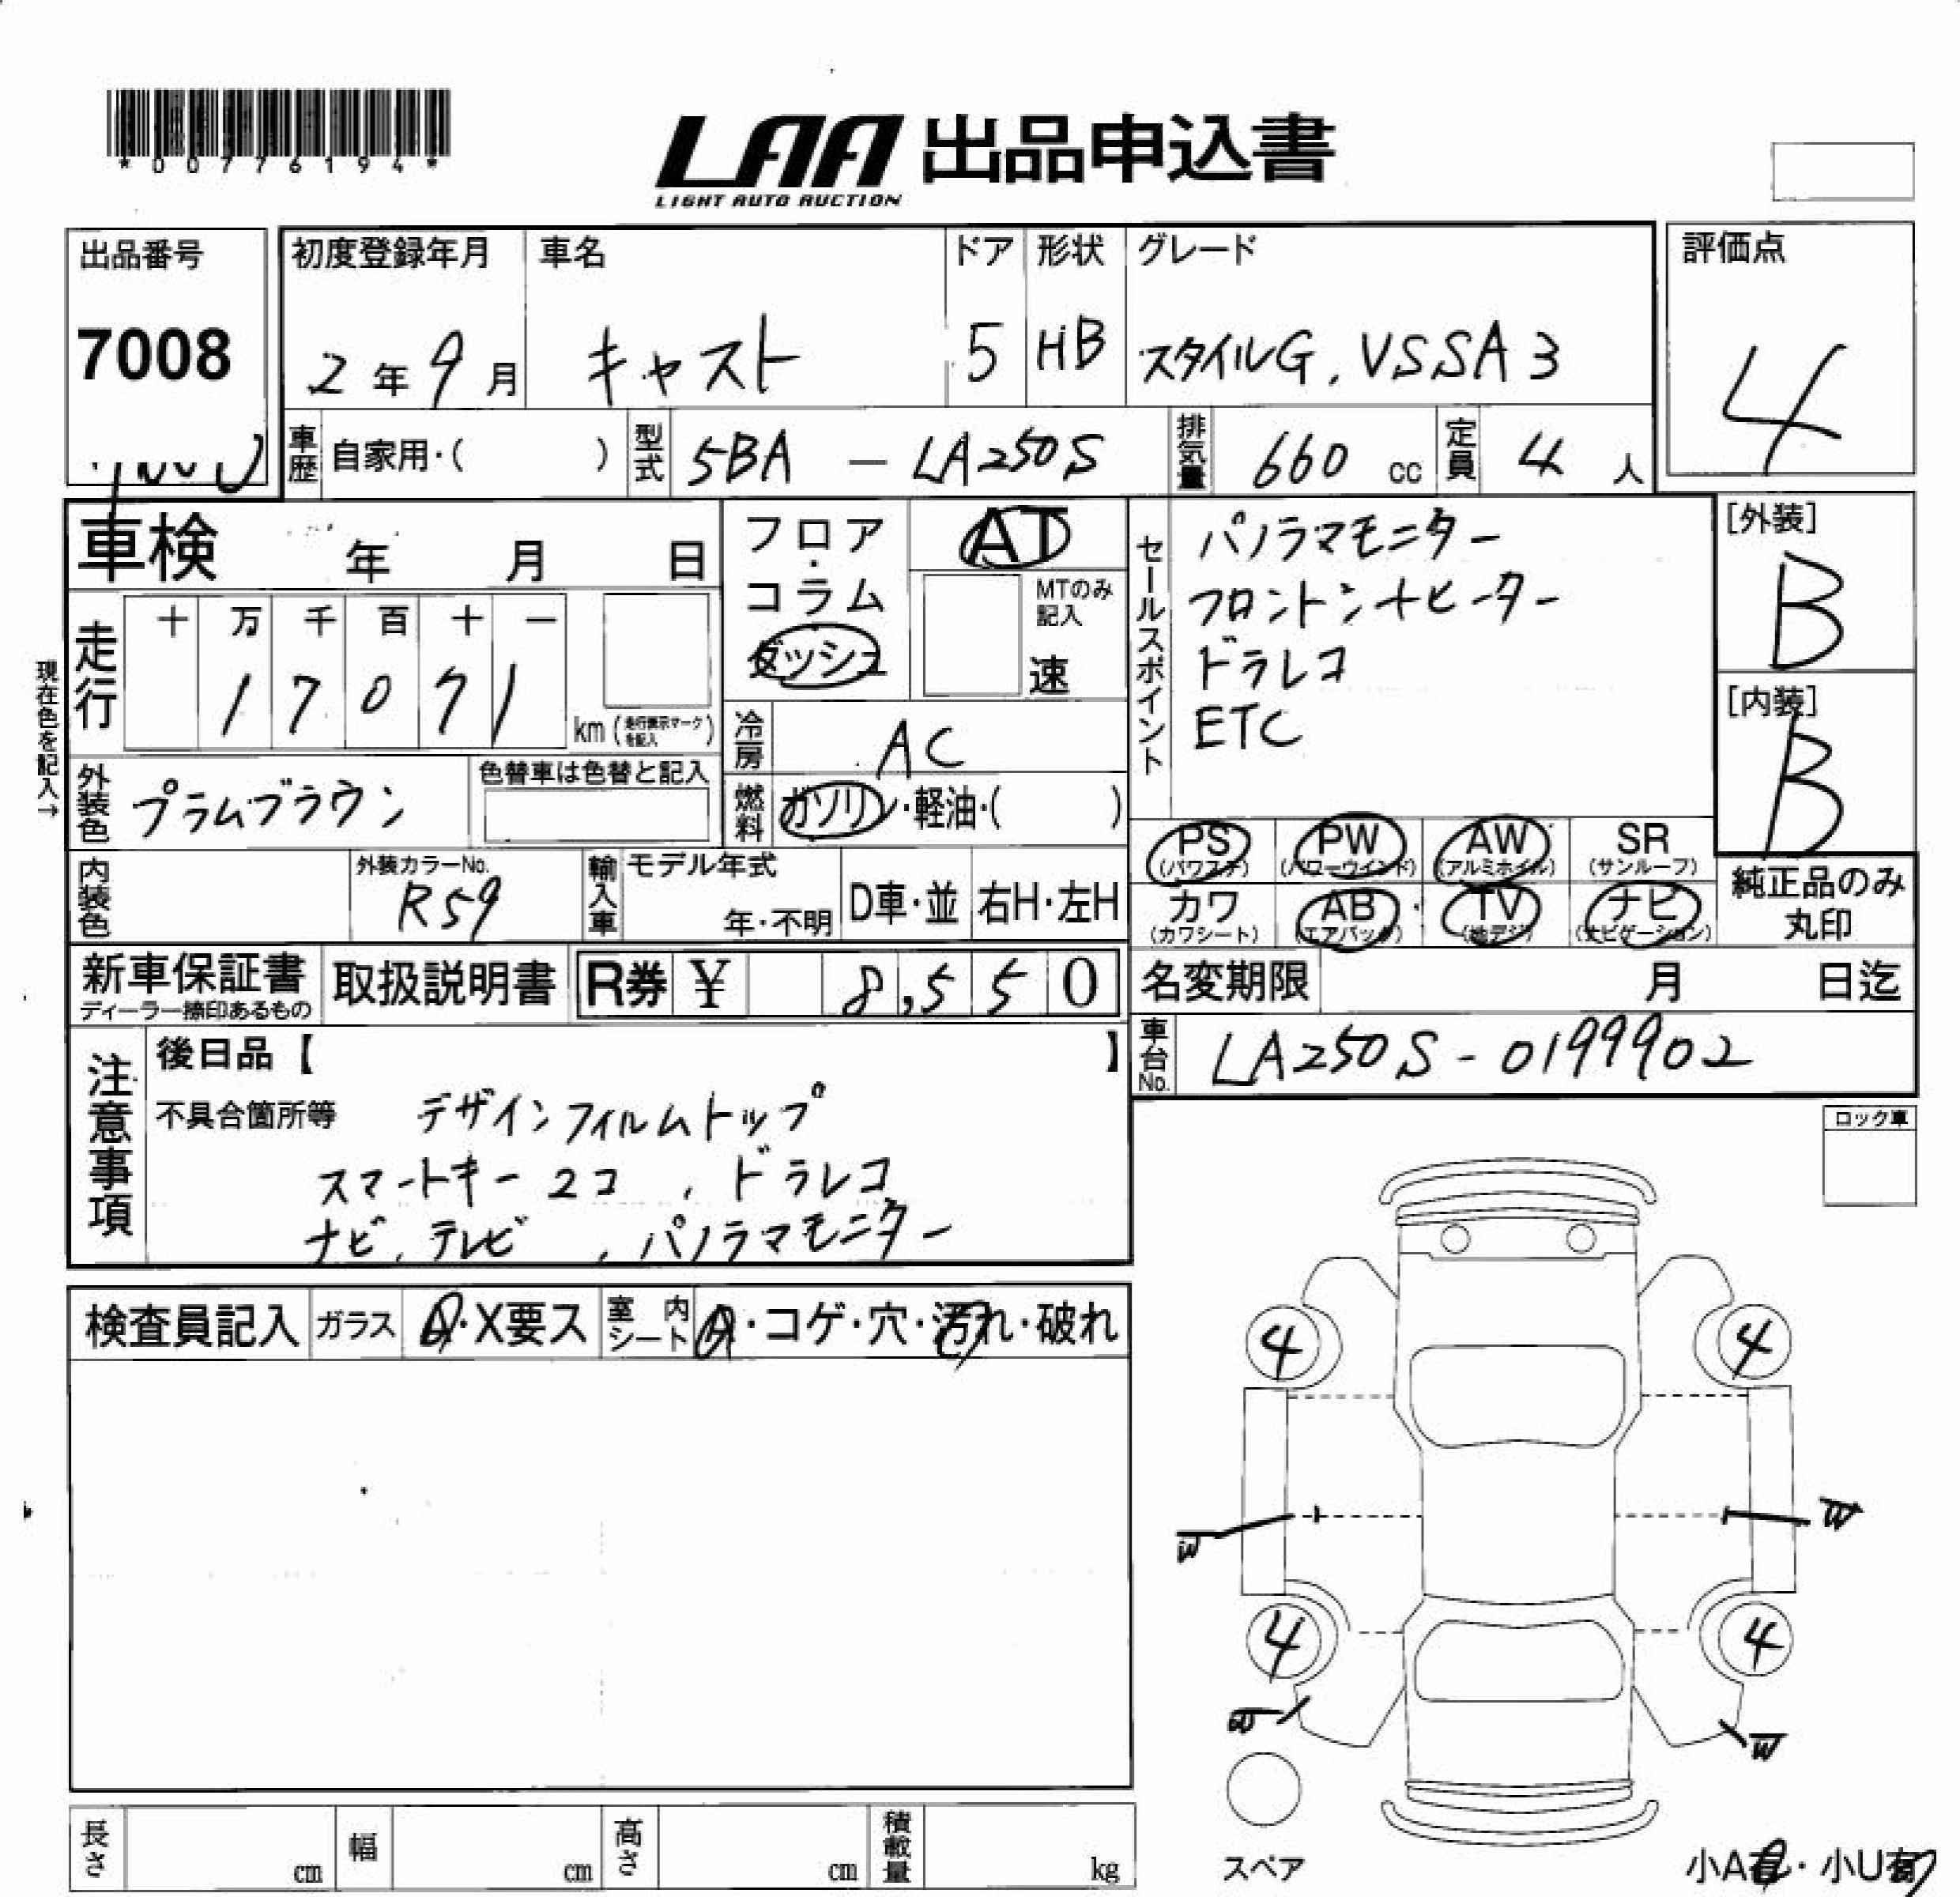 *00776194*
LAA 出品申込書
LIGHT AUTO AUCTION
出品番号
7008
初度登録年月
2年9月
車名
キャスト
ドア
5
形状
HB
グレード
スタイルG, VSSA3
評価点
4
車歴 自家用・( )
型式 5BA — LA250S
排気量 660 cc
定員 4 人
車検 年 月 日
フロア・コラム
ダッシュ
AT
MTのみ記入
速
セールスポイント
パノラマモニター
フロントシートヒーター
ドラレコ
ETC
[外装]
B
[内装]
B
現在色を記入→
走行
十 万 千 百 十 一
1 7 0 7 1
km (走行表示マークを記入)
冷房 AC
外装色 プラムブラウン
色替車は色替と記入
燃料 ガソリン・軽油・( )
PS (パワステ) PW (パワーウインド) AW (アルミホイル) SR (サンルーフ)
カワ (カワシート) AB (エアバック) ・ TV (地デジ) ナビ (ナビゲーション)
純正品のみ丸印
内装色
外装カラーNo.
R59
輸入車 モデル年式
年・不明
D車・並 右H・左H
新車保証書
ディーラー捺印あるもの
取扱説明書
R券 ¥ 8,550
名変期限 月 日迄
車台No. LA250S-0199902
注意事項
後日品【 】
不具合箇所等 デザインフィルムトップ
スマートキー2コ, ドラレコ
ナビ, テレビ, パノラマモニター
ロック車
検査員記入 ガラス A・X要ス 室内シート A・コゲ・穴・汚れ・破れ
4 4
W W
4 4
W W
スペア
小A有・小U有
長さ cm 幅 cm 高さ cm 積載量 kg